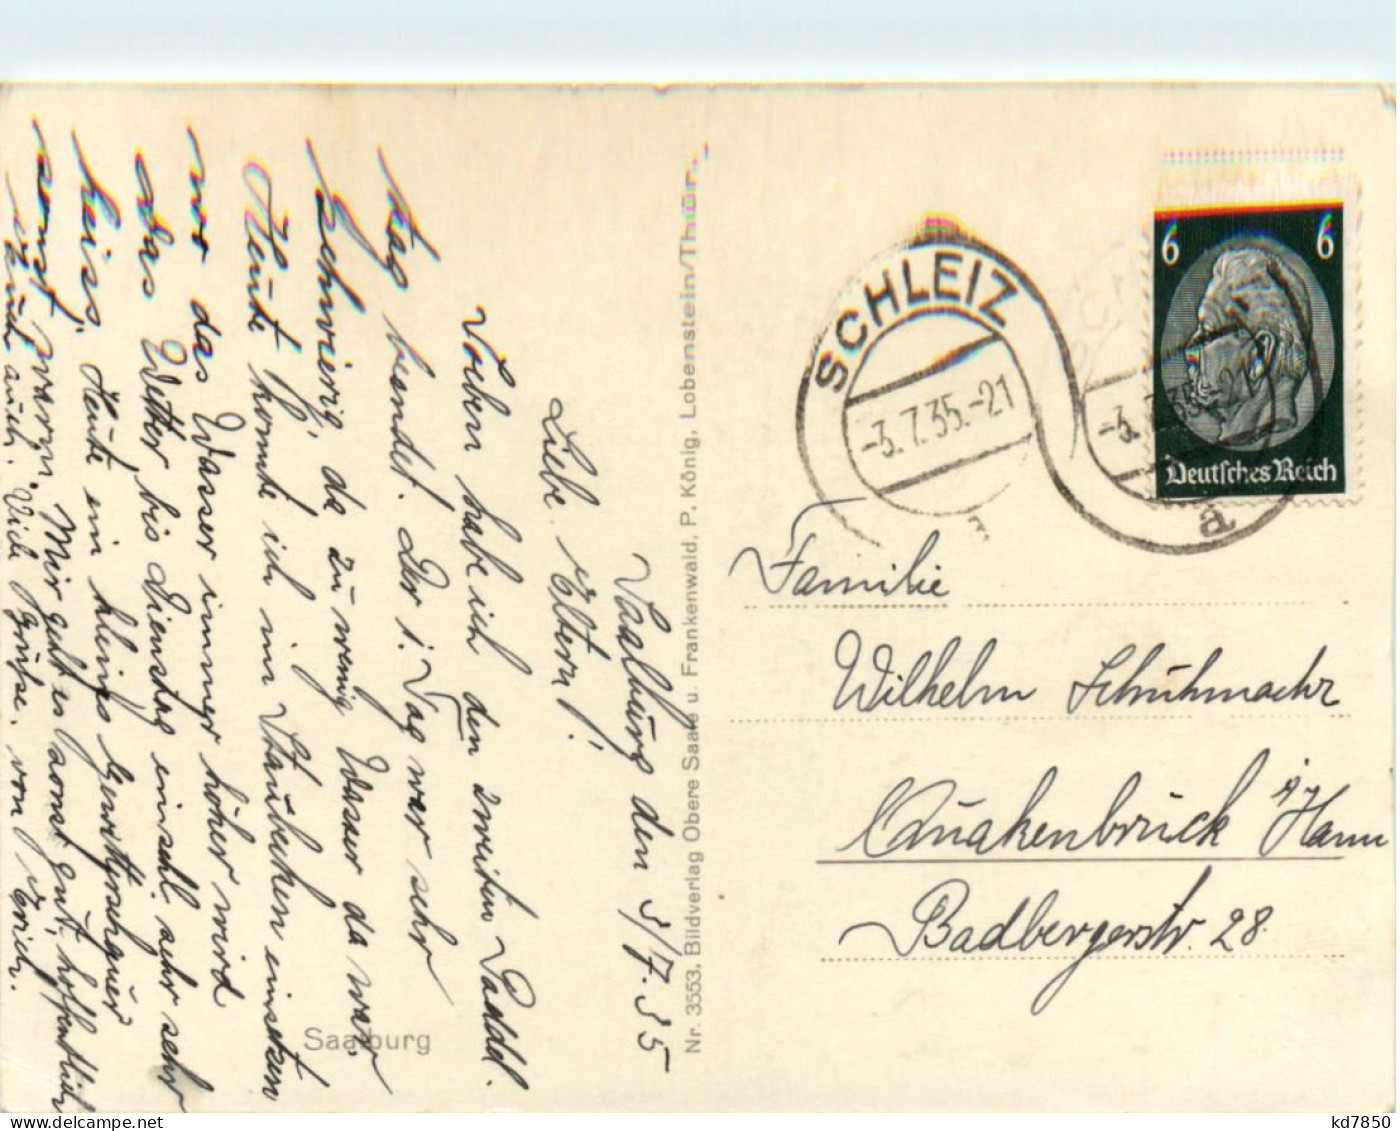 Saalburg den 3/7.35
Liebe Eltern!
Soeben habe ich den zweiten Paddel
tag beendet. Der 1. Tag war sehr
schwierig, da zu wenig Wasser da war.
Heute konnte ich im Staubecken einsetzen
wo das Wasser immer höher wird
Das Wetter bis Dienstag einschl. sehr sehr
heiss, Heute ein kleines
sonst warm. Mir geht es sonst gut, hoffentlich
Euch auch. Viele Grüße. von Erich.
Saalburg
Nr. 3553. Bildverlag Obere Saale u. Frankenwald, P. König, Lobenstein/Thür.
SCHLEIZ
-3.7.35.-21
a
6 6
Deutsches Reich
Familie
Wilhelm Schuhmachr
Quakenbrück i/Hann
Badbergerstr. 28.
delcampe.net
kd7850